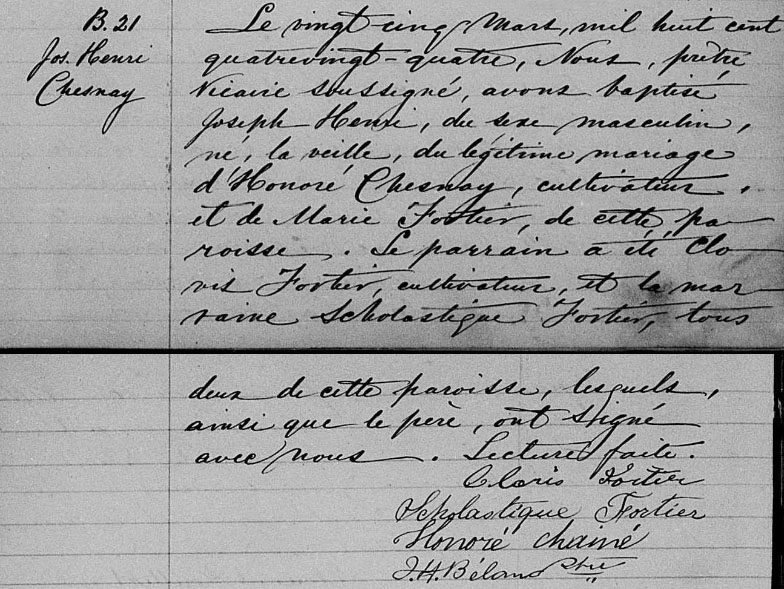 B. 21
Jos. Henri
Chesnay
Le vingt-cinq Mars, mil huit cent
quatrevingt-quatre, Nous, prêtre
Vicaire soussigné, avons baptisé
Joseph Henri, du sexe masculin,
né, la veille, du légitime mariage
d'Honoré Chesnay, cultivateur,
et de Marie Fortier, de cette pa-
roisse. Le parrain a été Clo-
vis Fortier, cultivateur, et la mar-
raine Scholastique Fortier, tous
deux de cette paroisse, lesquels,
ainsi que le père, ont signé
avec nous. Lecture faite.
Cloris Fortier
Scholastique Fortier
Honoré chainé
J. H. Béland Ptre